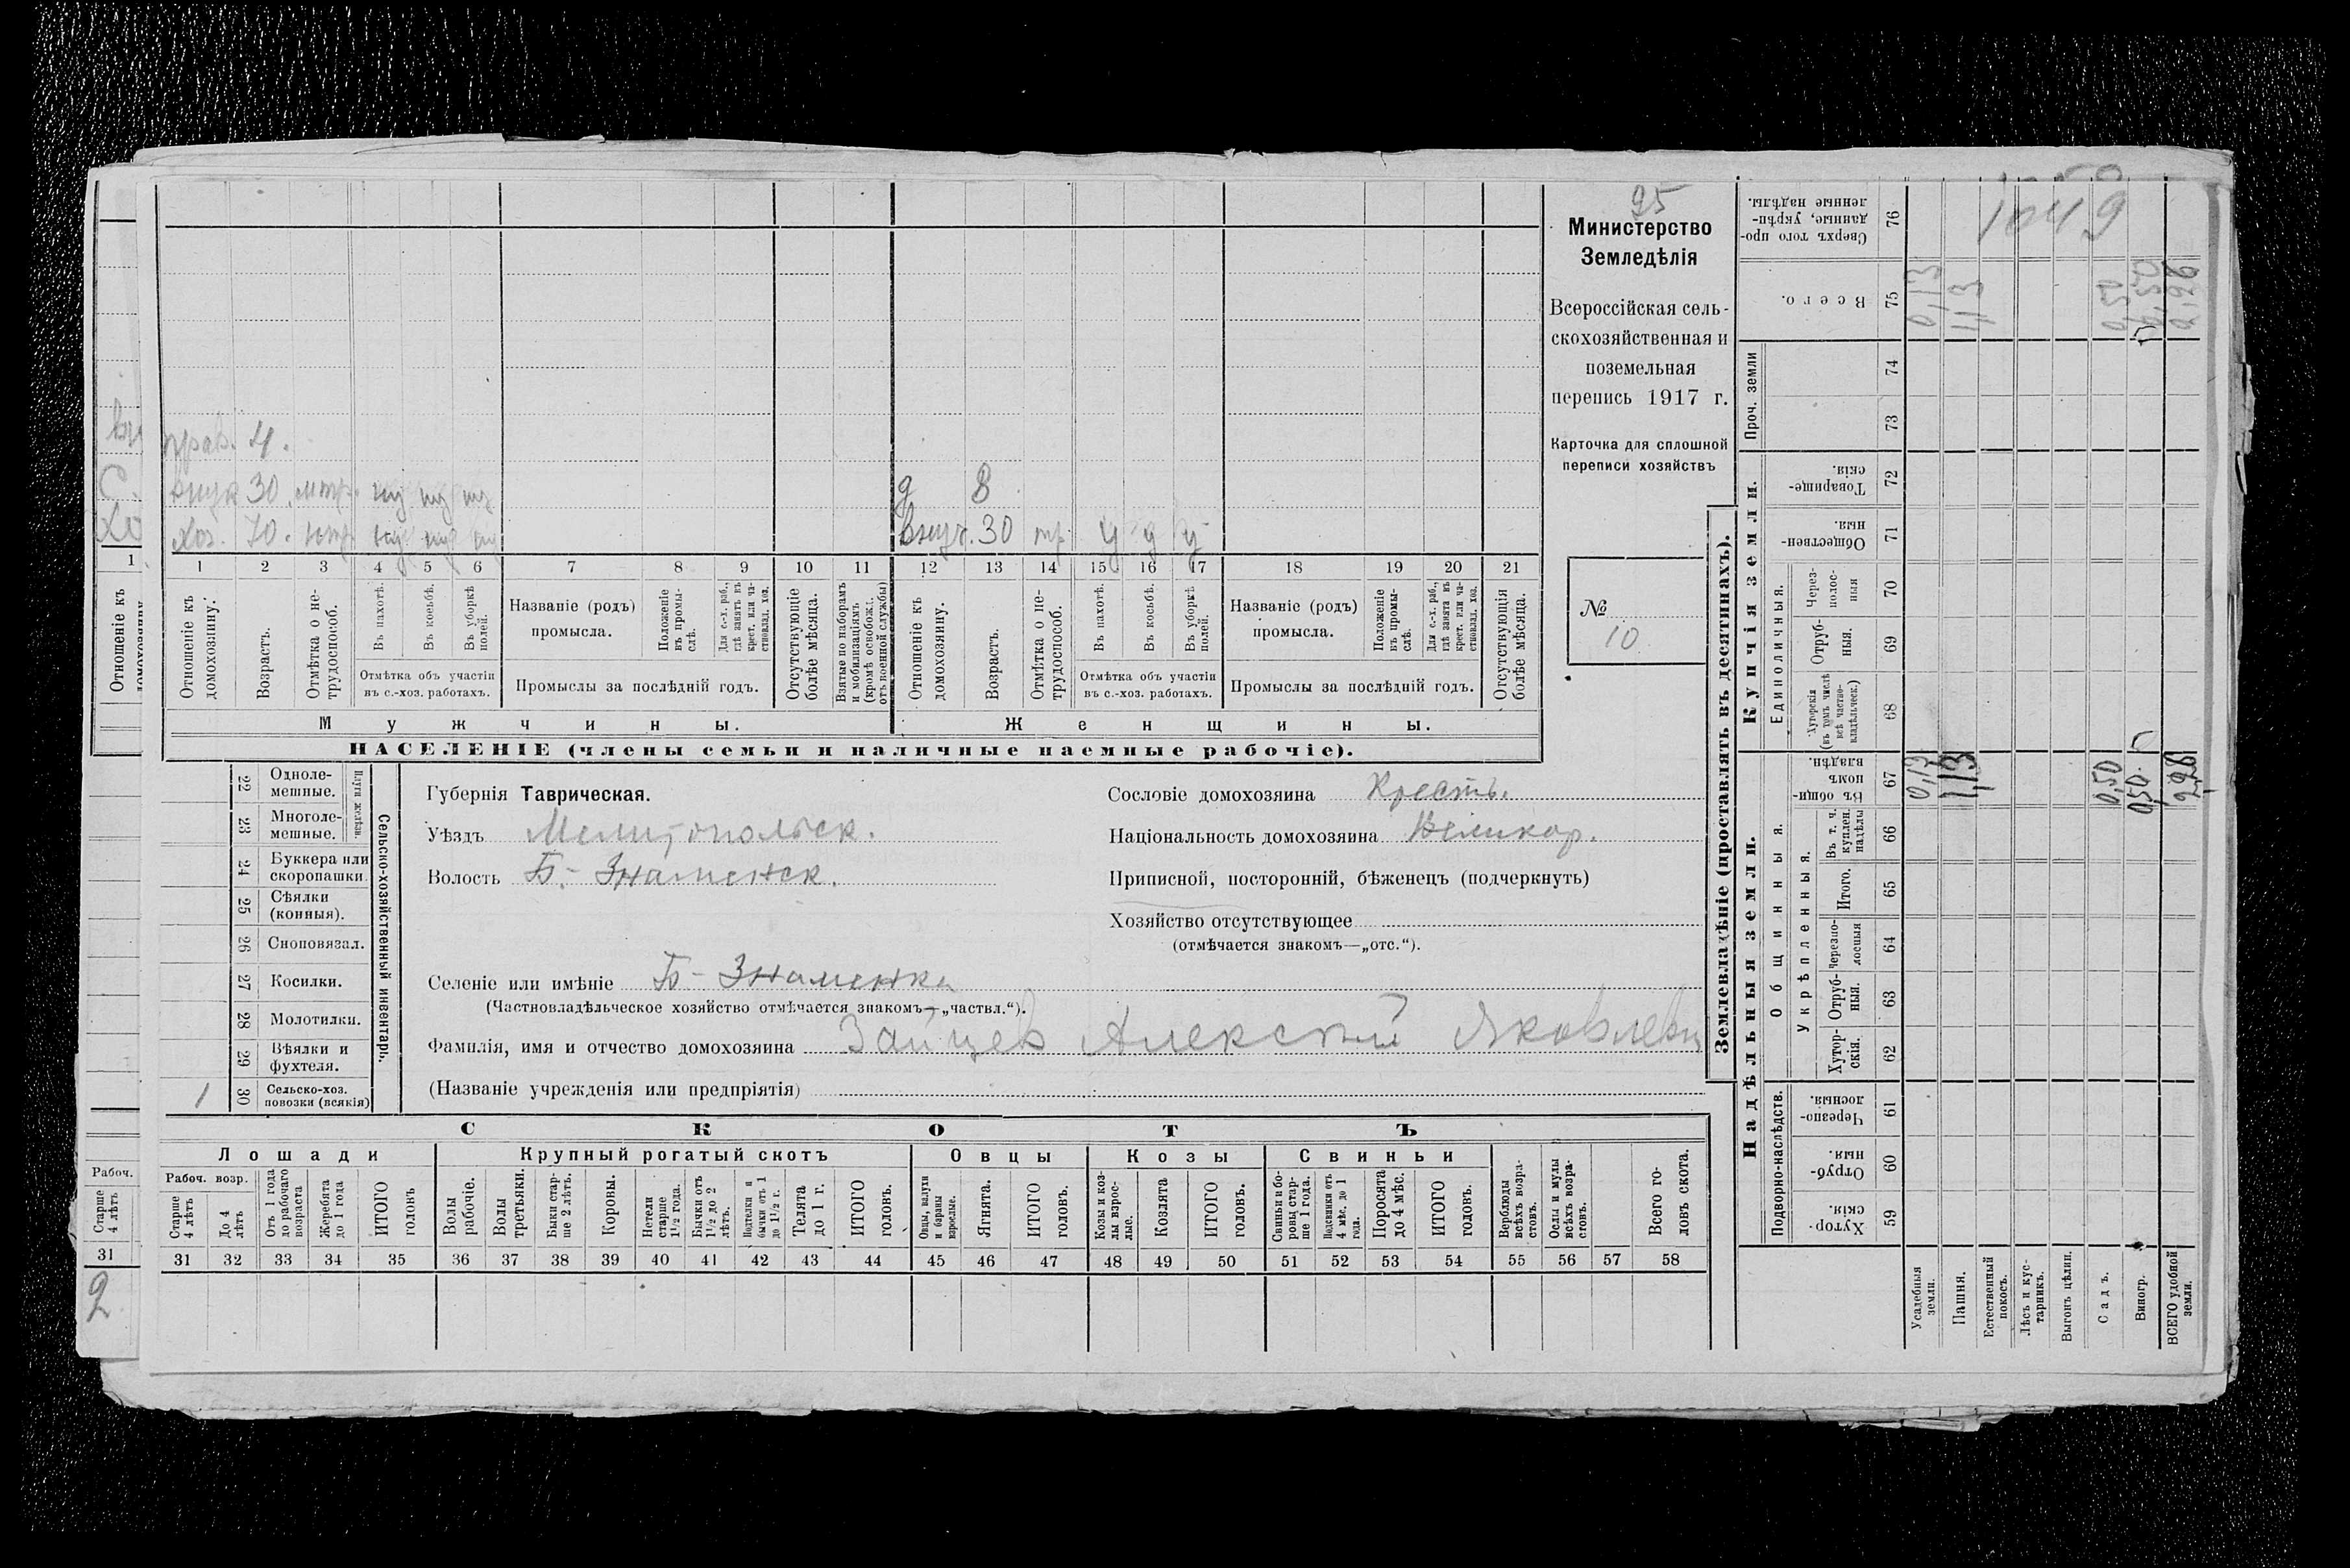 25
Министерство
Земледѣлія
Всероссійская сель-
скохозяйственная и
поземельная
перепись 1917 г.
Карточка для сплошной
переписи хозяйствъ
№
10
1049
прав. 4.
внук 30. мтр.
д 8
хоз. 70. нтр.
внуч. 30 тр. у у у
1 2 3 4 5 6 7 8 9 10 11 12 13 14 15 16 17 18 19 20 21
Отношеніе къ домохозяину.
Возрастъ.
Отмѣтка о не-трудоспособ.
Въ пахотѣ.
Въ косьбѣ.
Въ уборкѣ полей.
Отмѣтка объ участіи
въ с.-хоз. работахъ.
Названіе (родъ)
промысла.
Положеніе въ промы-слѣ.
Для с.-х. раб., гдѣ занятъ въ крест. или ча-стновлад. хоз.
Промыслы за послѣдній годъ.
Отсутствующіе болѣе мѣсяца.
Взятые по наборамъ и мобилизаціямъ (кромѣ освобожд. отъ военной службы)
Отношеніе къ домохозяину.
Возрастъ.
Отмѣтка о не-трудоспособ.
Въ пахотѣ.
Въ косьбѣ.
Въ уборкѣ полей.
Отмѣтка объ участіи
въ с.-хоз. работахъ.
Названіе (родъ)
промысла.
Положеніе въ промы-слѣ.
Для с.-х. раб., гдѣ занята въ крест. или ча-стновлад. хоз.
Промыслы за послѣдній годъ.
Отсутствующія болѣе мѣсяца.
Мужчины.
Женщины.
НАСЕЛЕНІЕ (члены семьи и наличные наемные рабочіе).
22 Одноле-мешные.
Плуги желѣзн.
23 Многоле-мешные.
24 Буккера или скоропашки.
25 Сѣялки (конныя).
26 Сноповязал.
27 Косилки.
28 Молотилки.
29 Вѣялки и фухтеля.
1 30 Сельско-хоз. повозки (всякія)
Сельско-хозяйственный инвентарь.
Губернія Таврическая.
Уѣздъ Мелитопольск.
Волость Б.-Знаменск.
Сословіе домохозяина Крестъ.
Національность домохозяина Великор.
Приписной, посторонній, бѣженецъ (подчеркнуть)
Хозяйство отсутствующее
(отмѣчается знакомъ—„отс.“).
Селеніе или имѣніе Б-Знаменка
(Частновладѣльческое хозяйство отмѣчается знакомъ—„частвл.“).
Фамилія, имя и отчество домохозяина Зайцев Алексѣй Яковлевич
(Названіе учрежденія или предпріятія)
СКОТЪ
Лошади
Крупный рогатый скотъ
Овцы
Козы
Свиньи
Рабоч. возр.
Старше 4 лѣтъ
До 4 лѣтъ
Отъ 1 года до рабочаго возраста
Жеребята до 1 года
ИТОГО головъ
Волы рабочіе.
Волы третьяки.
Быки стар-ше 2 лѣтъ.
Коровы.
Нетели старше 1½ года.
Бычки отъ 1½ до 2 лѣтъ.
Подтелки и бычки отъ 1 до 1½ г.
Телята до 1 г.
ИТОГО головъ.
Овцы, валухи и бараны взрослые.
Ягнята.
ИТОГО головъ.
Козы и коз-лы взрос-лые.
Козлята
ИТОГО головъ.
Свиньи и бо-ровы стар-ше 1 года.
Подсвинки отъ 4 мѣс. до 1 года.
Поросята до 4 мѣс.
ИТОГО головъ.
Верблюды всѣхъ возра-стовъ.
Ослы и мулы всѣхъ возра-стовъ.
Всего го-ловъ скота.
31 32 33 34 35 36 37 38 39 40 41 42 43 44 45 46 47 48 49 50 51 52 53 54 55 56 57 58
Землевладѣніе (проставлять въ десятинахъ).
Надѣльныя земли.
Купчія земли.
Проч. земли
Подворно-наслѣдств.
Общинныя.
Укрѣпленныя.
Единоличныя.
Хутор-скія. 59
Отруб-ныя. 60
Черезпо-лосныя. 61
Хутор-скія. 62
Отруб-ныя. 63
Черезпо-лосныя 64
Итого. 65
Въ т. ч. куплен. надѣлы 66
Въ общи-номъ владѣн. 67
Хуторскія (въ томъ числѣ всѣ частно-владѣльческ.) 68
Отруб-ныя. 69
Через-полос-ныя 70
Обществен-ныя. 71
Товарище-скія. 72
73
74
Всего. 75
Сверхъ того про-данные, укрѣп-ленные надѣлы. 76
Усадебныя земли. 0,13 0,13
Пашня. 1,13 1,13
Естественный покосъ.
Лѣсъ и кус-тарникъ.
Выгонъ цѣлин.
Садъ. 0,50 0,50
Виногр. 0,50 0,50
ВСЕГО удобной земли.
Отношеніе къ
1
Рабоч.
Старше 4 лѣтъ
31
2